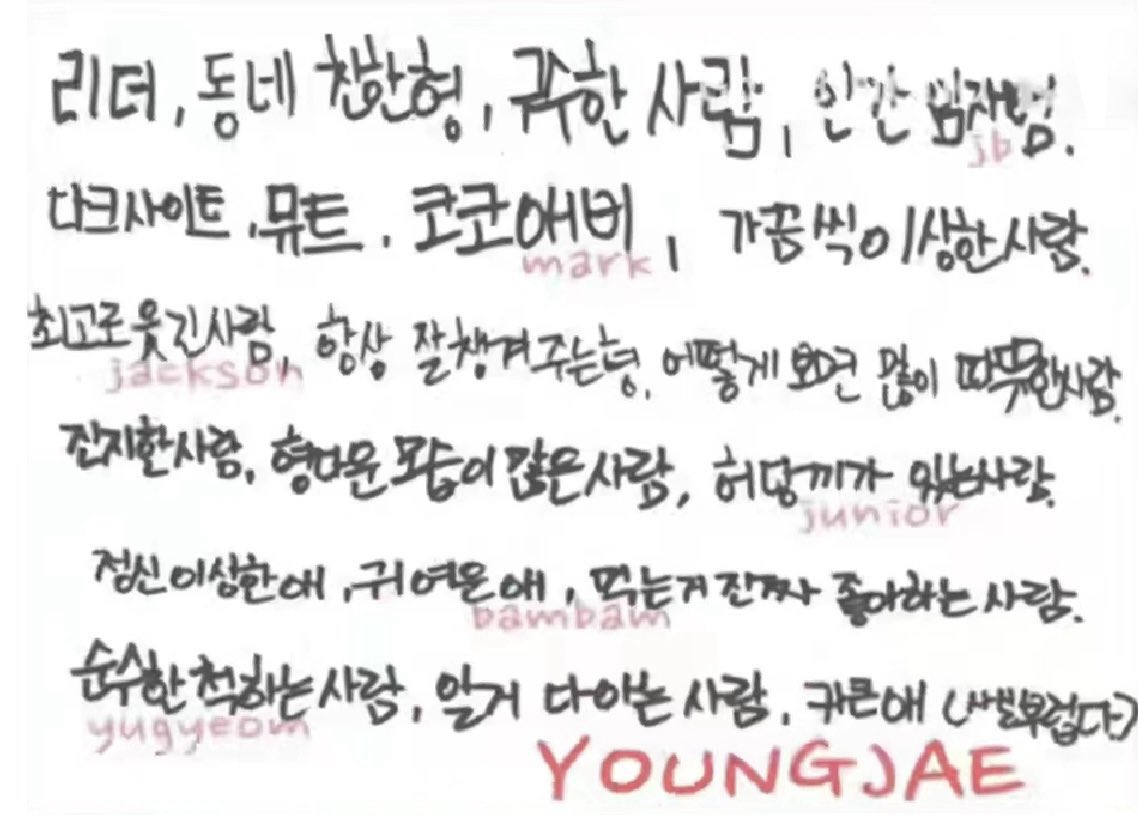 리더, 동네 친한형, 궁수한 사람, 인간 임재범.
jb
다크사이트, 뮤트, 코코애비, 가끔씩이상한사람.
mark
최고로웃긴사람, 항상 잘챙겨주는형, 어떻게 보면 많이 따뜻한사람.
jackson
진지한사람, 형다운 모습이 많은사람, 허당끼가 있는사람.
junior
정신이상한애, 귀여운애, 먹는거진짜 좋아하는 사람.
bambam
순수한척하는사람, 알거 다아는사람, 키큰애 (부럽다)
yugyeom
YOUNGJAE